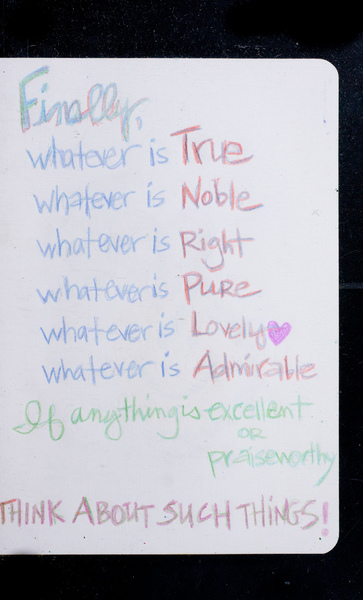 Finally,
whatever is True
whatever is Noble
whatever is Right
whatever is Pure
whatever is Lovely
whatever is Admirable
If anything is excellent
or
praiseworthy
THINK ABOUT SUCH THINGS!